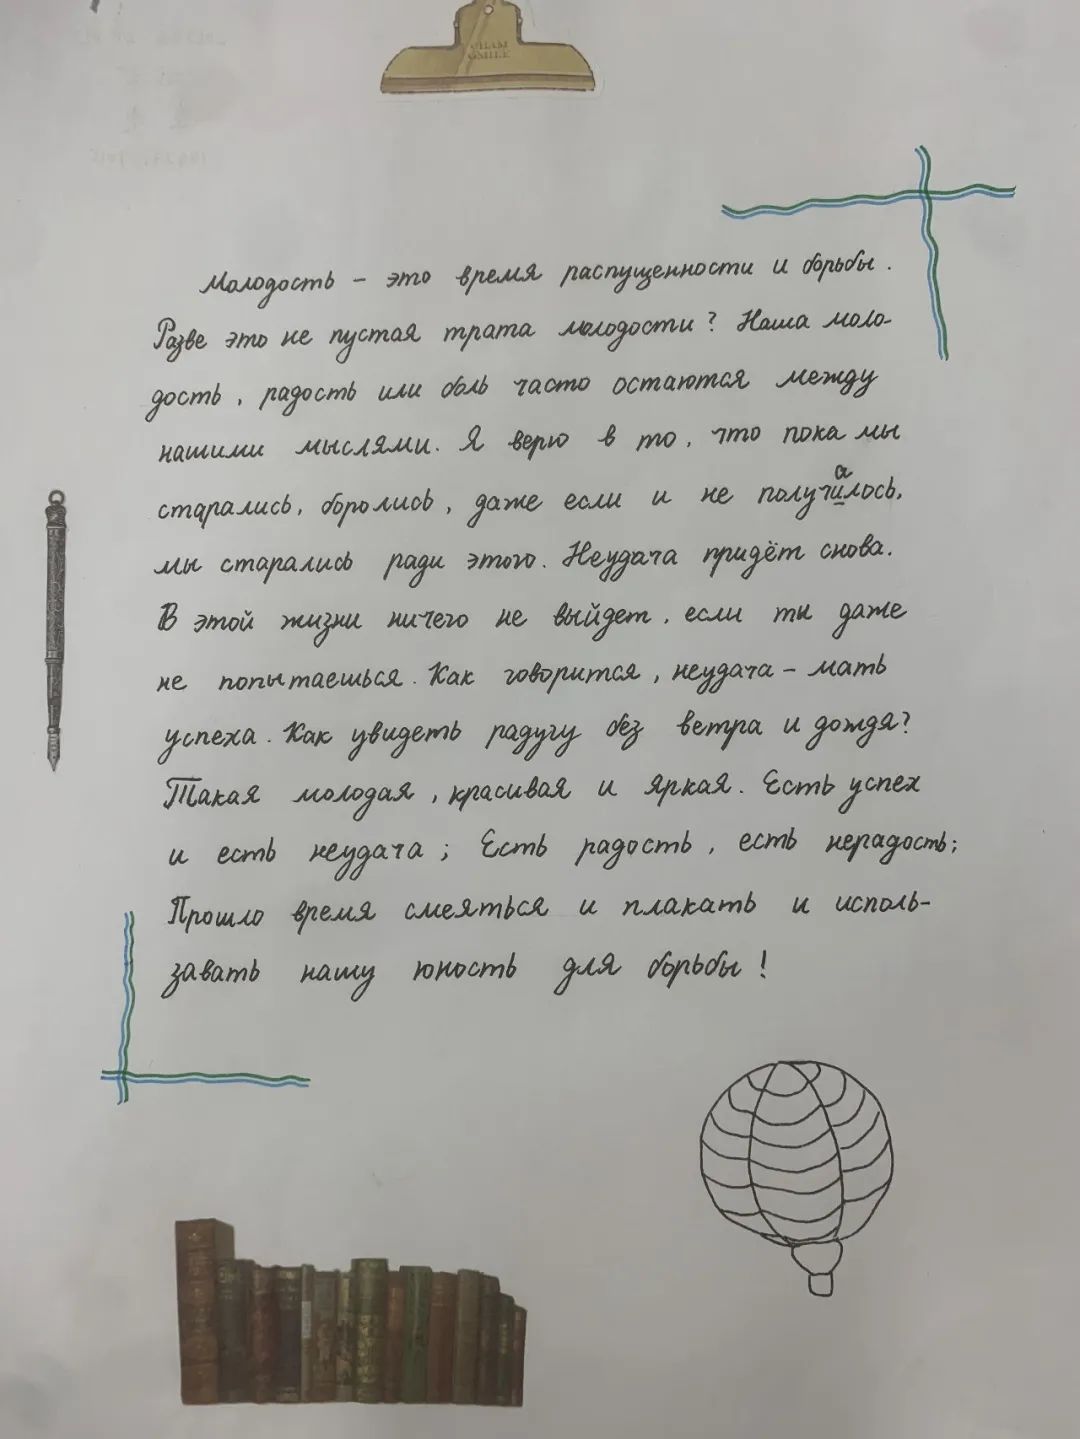 CHAM
SMILE
Молодость – это время распущенности и борьбы.
Разве это не пустая трата молодости? Наша моло-
дость, радость или боль часто остаются между
нашими мыслями. Я верю в то, что пока мы
старались, боролись, даже если и не получилось,
а
мы старались ради этого. Неудача придёт снова.
В этой жизни ничего не выйдет, если ты даже
не попытаешься. Как говорится, неудача – мать
успеха. Как увидеть радугу без ветра и дождя?
Такая молодая, красивая и яркая. Есть успех
и есть неудача; Есть радость, есть нерадость;
Прошло время смеяться и плакать и исполь-
завать нашу юность для борьбы!